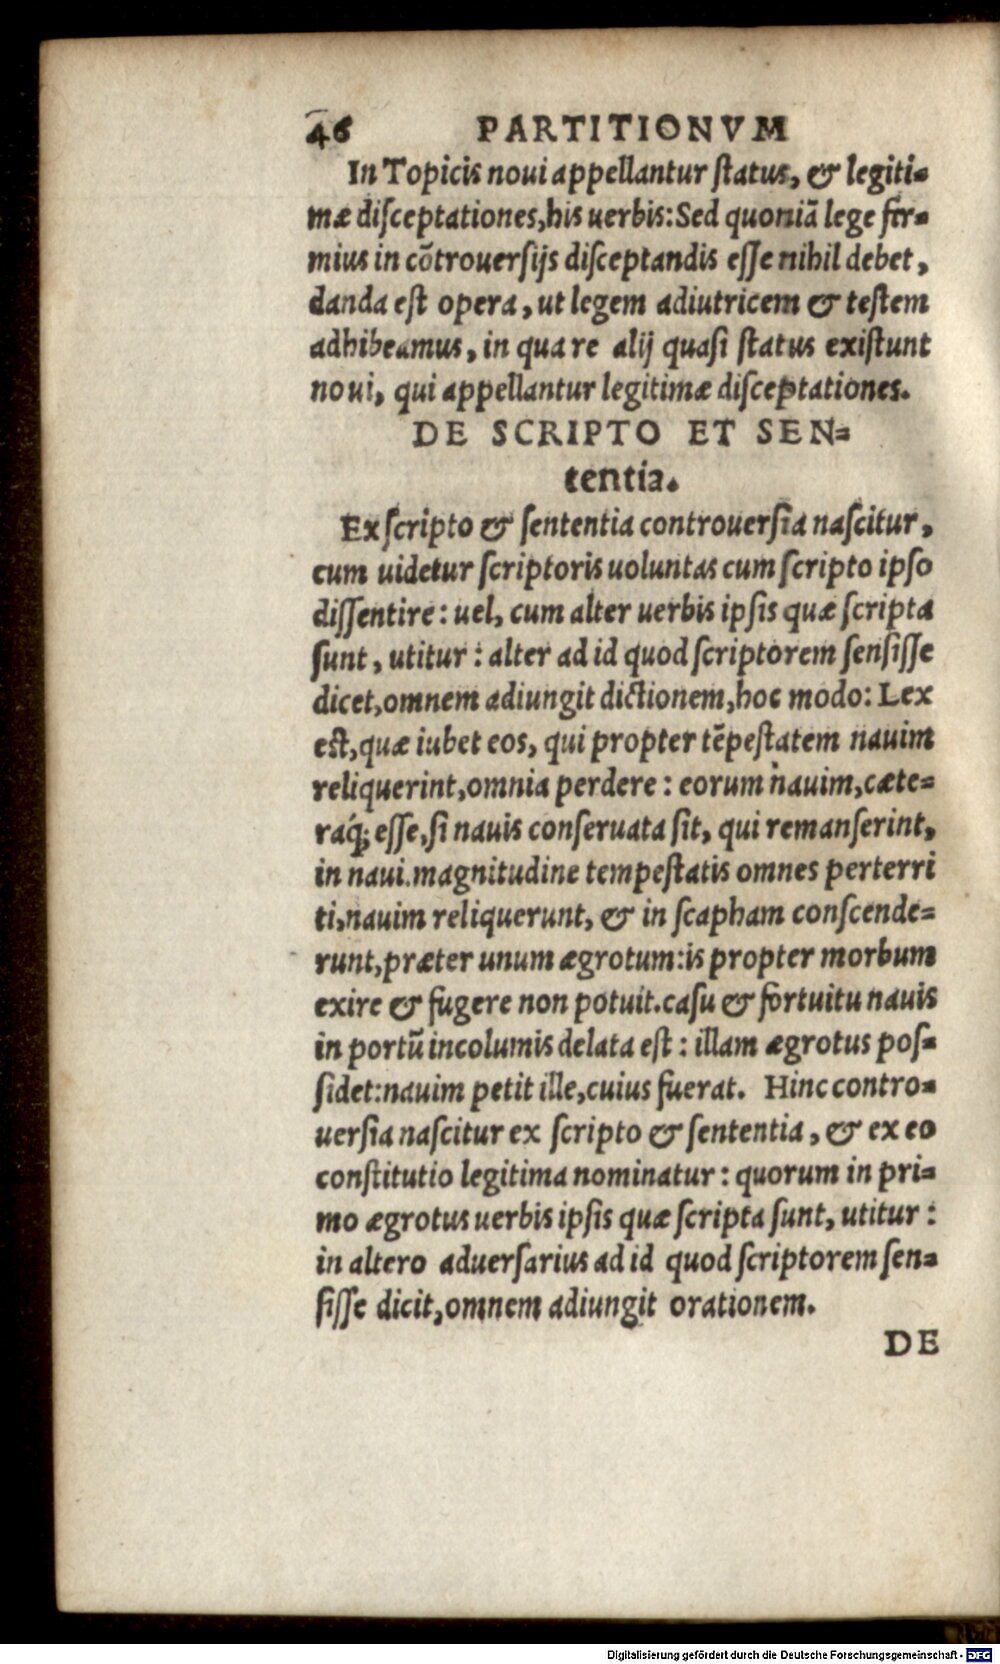 46 PARTITIONVM
In Topicis noui appellantur ſtatus, & legiti-
mæ diſceptationes, his uerbis: Sed quoniã lege fir-
mius in cõtrouerſijs diſceptandis eſſe nihil debet,
danda eſt opera, ut legem adiutricem & teſtem
adhibeamus, in qua re alij quaſi ſtatus exiſtunt
noui, qui appellantur legitimæ diſceptationes.
DE SCRIPTO ET SEN=
tentia.
Ex ſcripto & ſententia controuerſia naſcitur,
cum uidetur ſcriptoris uoluntas cum ſcripto ipſo
diſſentire: uel, cum alter uerbis ipſis quæ ſcripta
ſunt, utitur: alter ad id quod ſcriptorem ſenſiſſe
dicet, omnem adiungit dictionem, hoc modo: Lex
eſt, quæ iubet eos, qui propter tẽpeſtatem nauim
reliquerint, omnia perdere: eorum nauim, cæte=
raq́; eſſe, ſi nauis conſeruata ſit, qui remanſerint,
in naui. magnitudine tempeſtatis omnes perterri
ti, nauim reliquerunt, & in ſcapham conſcende=
runt, præter unum ægrotum: is propter morbum
exire & fugere non potuit. caſu & fortuitu nauis
in portũ incolumis delata eſt: illam ægrotus poſ=
ſidet: nauim petit ille, cuius fuerat. Hinc contro=
uerſia naſcitur ex ſcripto & ſententia, & ex eo
conſtitutio legitima nominatur: quorum in pri=
mo ægrotus uerbis ipſis quæ ſcripta ſunt, utitur:
in altero aduerſarius ad id quod ſcriptorem ſen=
ſiſſe dicit, omnem adiungit orationem.
DE
Digitalisierung gefördert durch die Deutsche Forschungsgemeinschaft - DFG